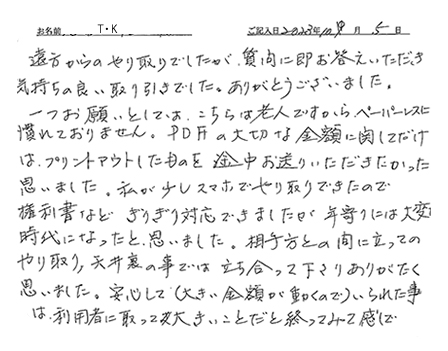 お名前 T・K ご記入日 2023年12月5日
遠方からのやり取りでしたが、質問に即お答えいただき
気持ちの良い取り引きでした。ありがとうございました。
一つお願いとしては、こちらは老人ですから、ペーパーレスに
慣れておりません。PDFの大切な金額に関してだけ
は、プリントアウトしたものを途中お送りいただきたかったと
思いました。私が少しスマホでやり取りできたので
権利書など ぎりぎり対応できましたが 年寄りには大変な
時代になったと思いました。相手方との間に立っての
やり取り、天井裏の事では 立ち合って下さりありがたく
思いました。安心して(大きい金額が動くので)いられた事
は、利用者に取って大きいことだと終ってみて感じで